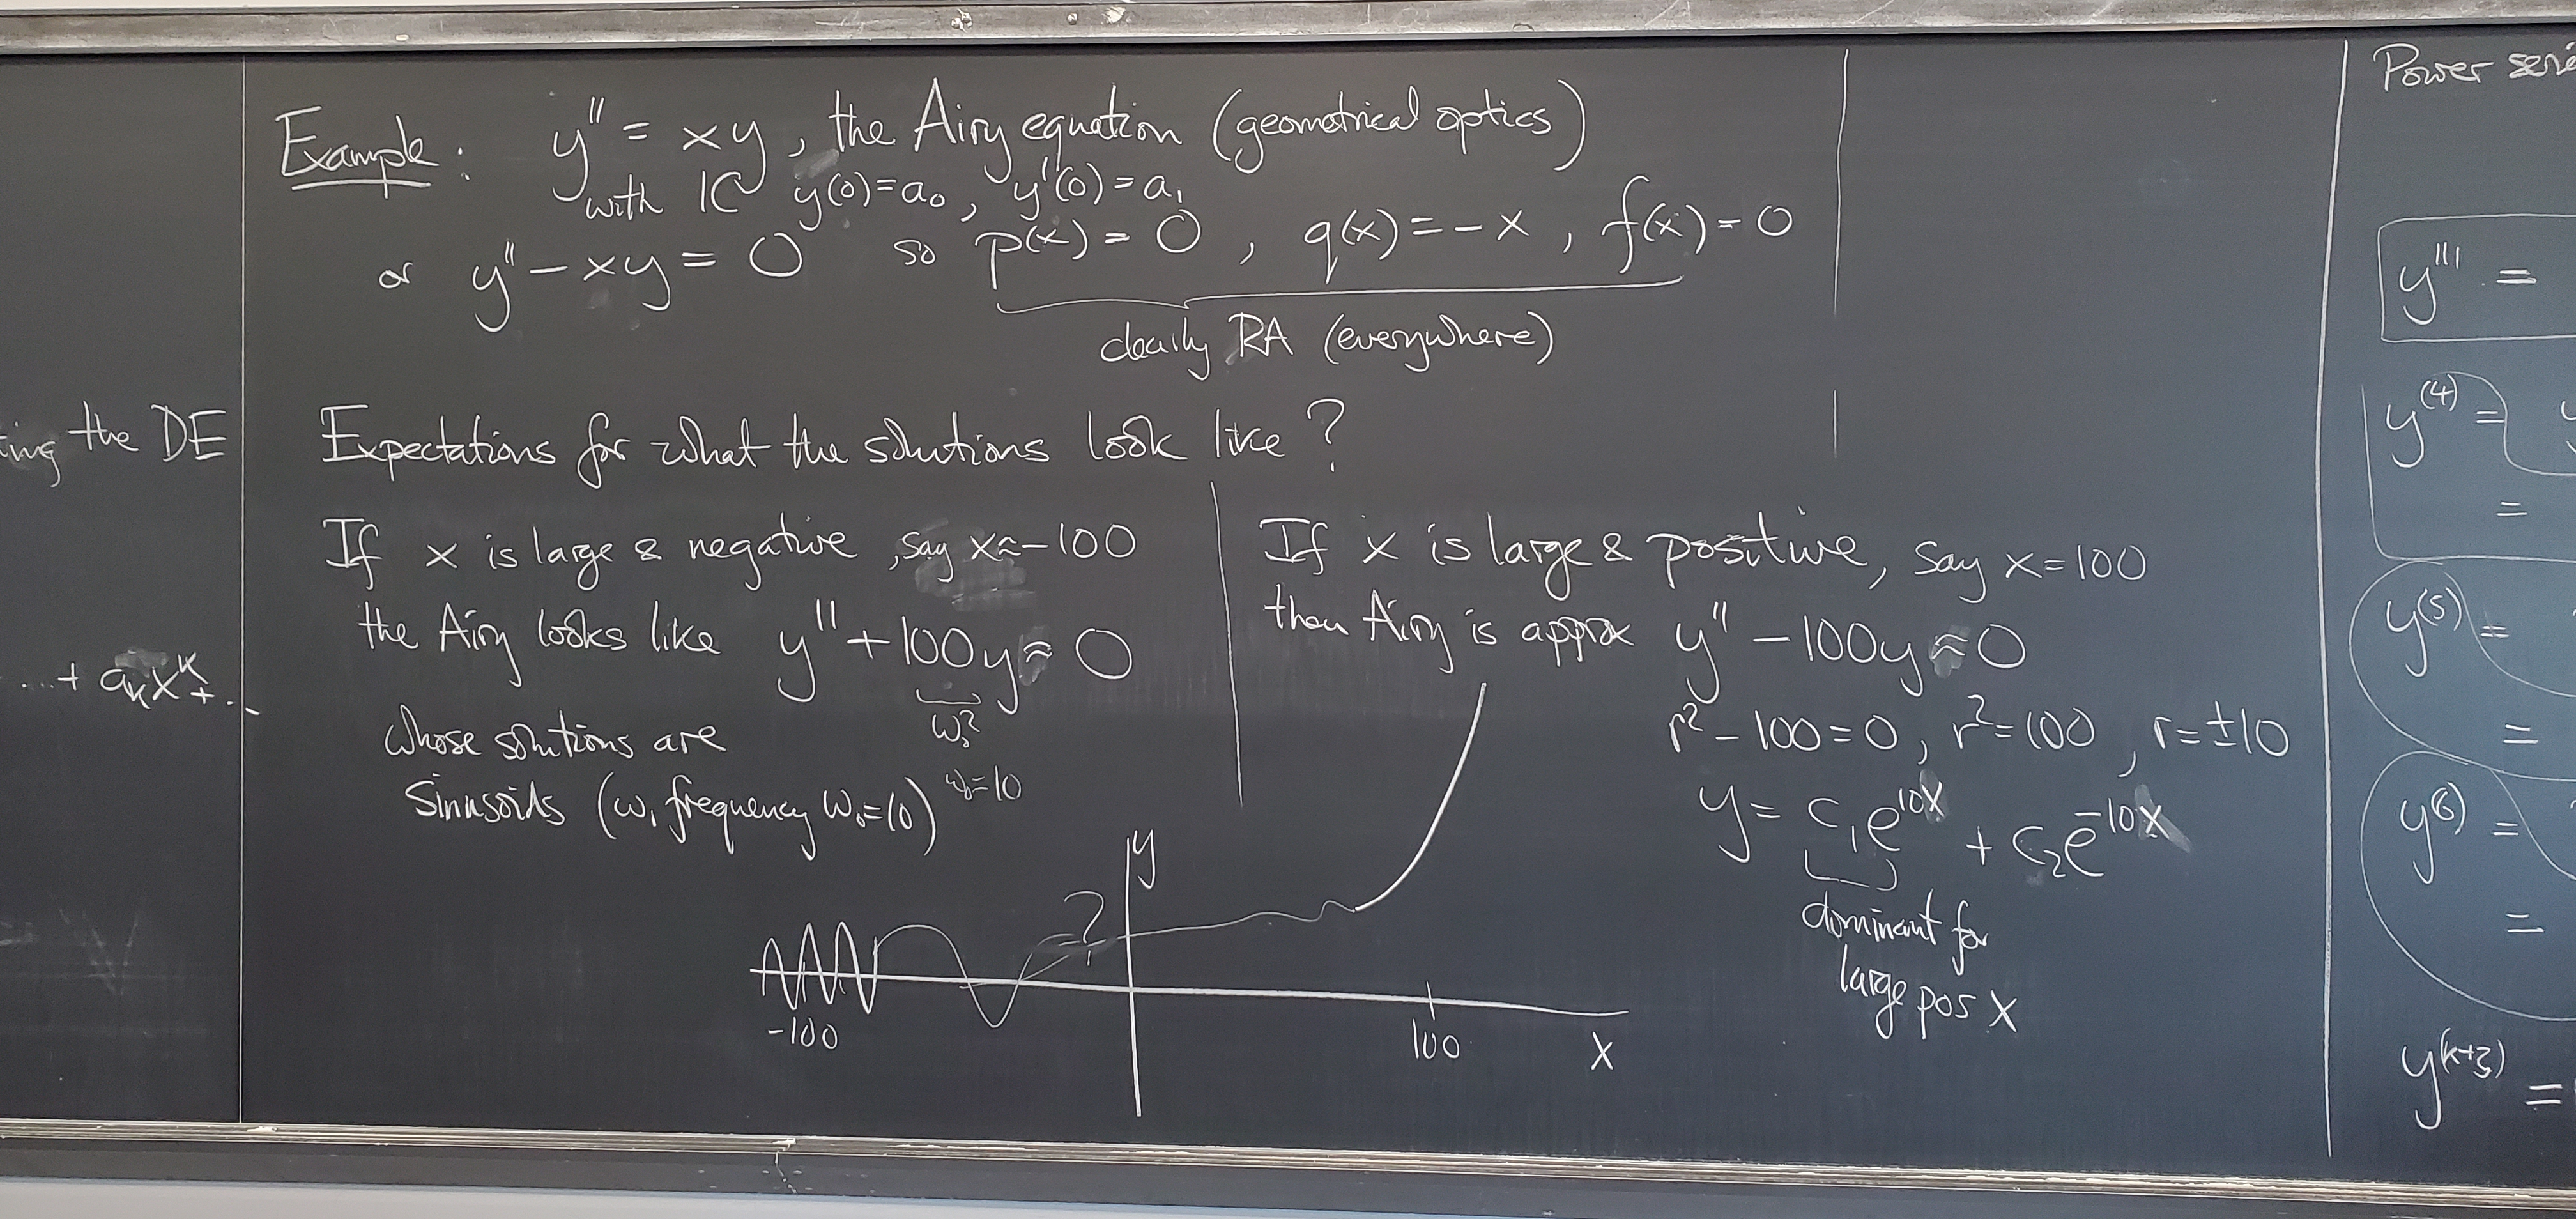 ing the DE
...+ aₖxᵏ+...
Example: y'' = xy, the Airy equation (geometrical optics)
with IC y(0)=a₀, y'(0)=a₁
or y''-xy=0 so p(x)=0, q(x)=-x, f(x)=0
clearly RA (everywhere)
Expectations for what the solutions look like?
If x is large & negative, say x≈-100
the Airy looks like y''+100y≈0
ω₀²
whose solutions are
ω₀=10
sinusoids (w/ frequency ω₀=10)
If x is large & positive, say x=100
then Airy is approx y''-100y≈0
r²-100=0, r²=100, r=±10
y= c₁e¹⁰ˣ + c₂e⁻¹⁰ˣ
dominant for
large pos x
y
?
-100
100
x
Power
y''' =
y⁽⁴⁾ =
=
y⁽⁵⁾ =
=
y⁽⁶⁾ =
=
y⁽ᵏ⁺³⁾ =